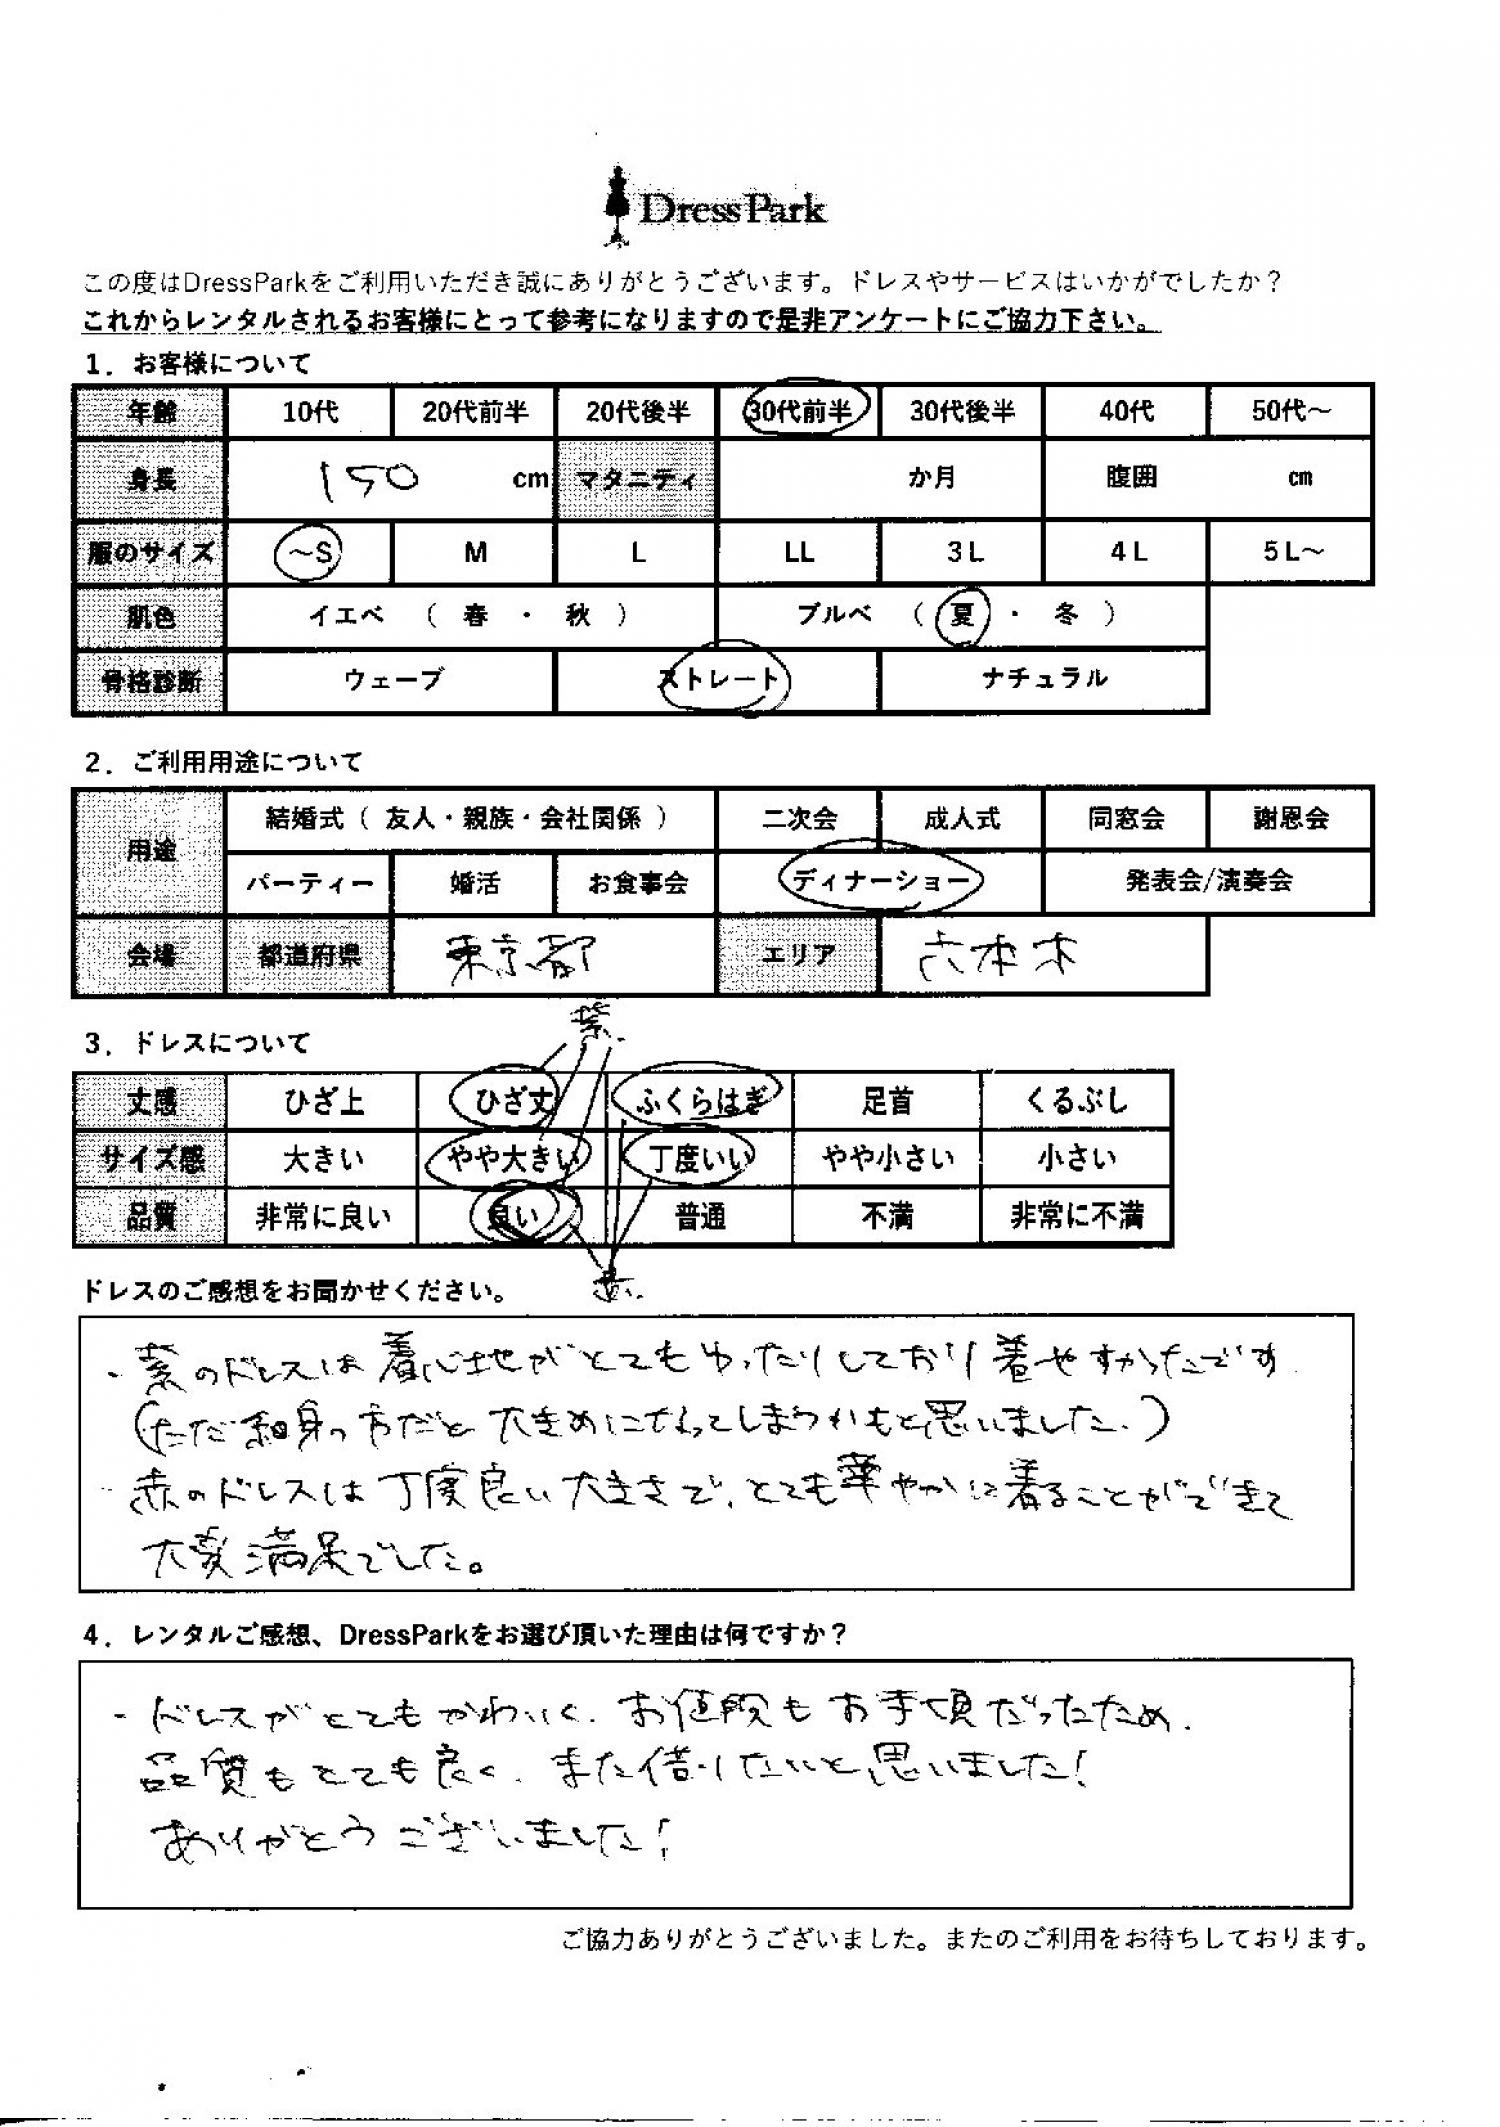 DressPark
この度はDressParkをご利用いただき誠にありがとうございます。ドレスやサービスはいかがでしたか？
これからレンタルされるお客様にとって参考になりますので是非アンケートにご協力下さい。
1．お客様について
年齢 10代 20代前半 20代後半 30代前半 30代後半 40代 50代～
身長 150 cm マタニティ か月 腹囲 cm
服のサイズ ～S M L LL 3L 4L 5L～
肌色 イエベ （ 春 ・ 秋 ） ブルベ （ 夏 ・ 冬 ）
骨格診断 ウェーブ ストレート ナチュラル
2．ご利用用途について
用途 結婚式（ 友人・親族・会社関係 ） 二次会 成人式 同窓会 謝恩会
パーティー 婚活 お食事会 ディナーショー 発表会/演奏会
会場 都道府県 東京都 エリア 六本木
紫
3．ドレスについて
丈感 ひざ上 ひざ丈 ふくらはぎ 足首 くるぶし
サイズ感 大きい やや大きい 丁度いい やや小さい 小さい
品質 非常に良い 良い 普通 不満 非常に不満
赤
ドレスのご感想をお聞かせください。
・紫のドレスは着心地がとてもゆったりしており着やすかったです
（ただ細身の方だと大きめになってしまうかもと思いました。）
・赤のドレスは丁度良い大きさで、とても華やかに着ることができて
大変満足でした。
4．レンタルご感想、DressParkをお選び頂いた理由は何ですか？
・ドレスがとてもかわいく、お値段もお手頃だったため、
品質もとても良く、また借りたいと思いました！
ありがとうございました！
ご協力ありがとうございました。またのご利用をお待ちしております。